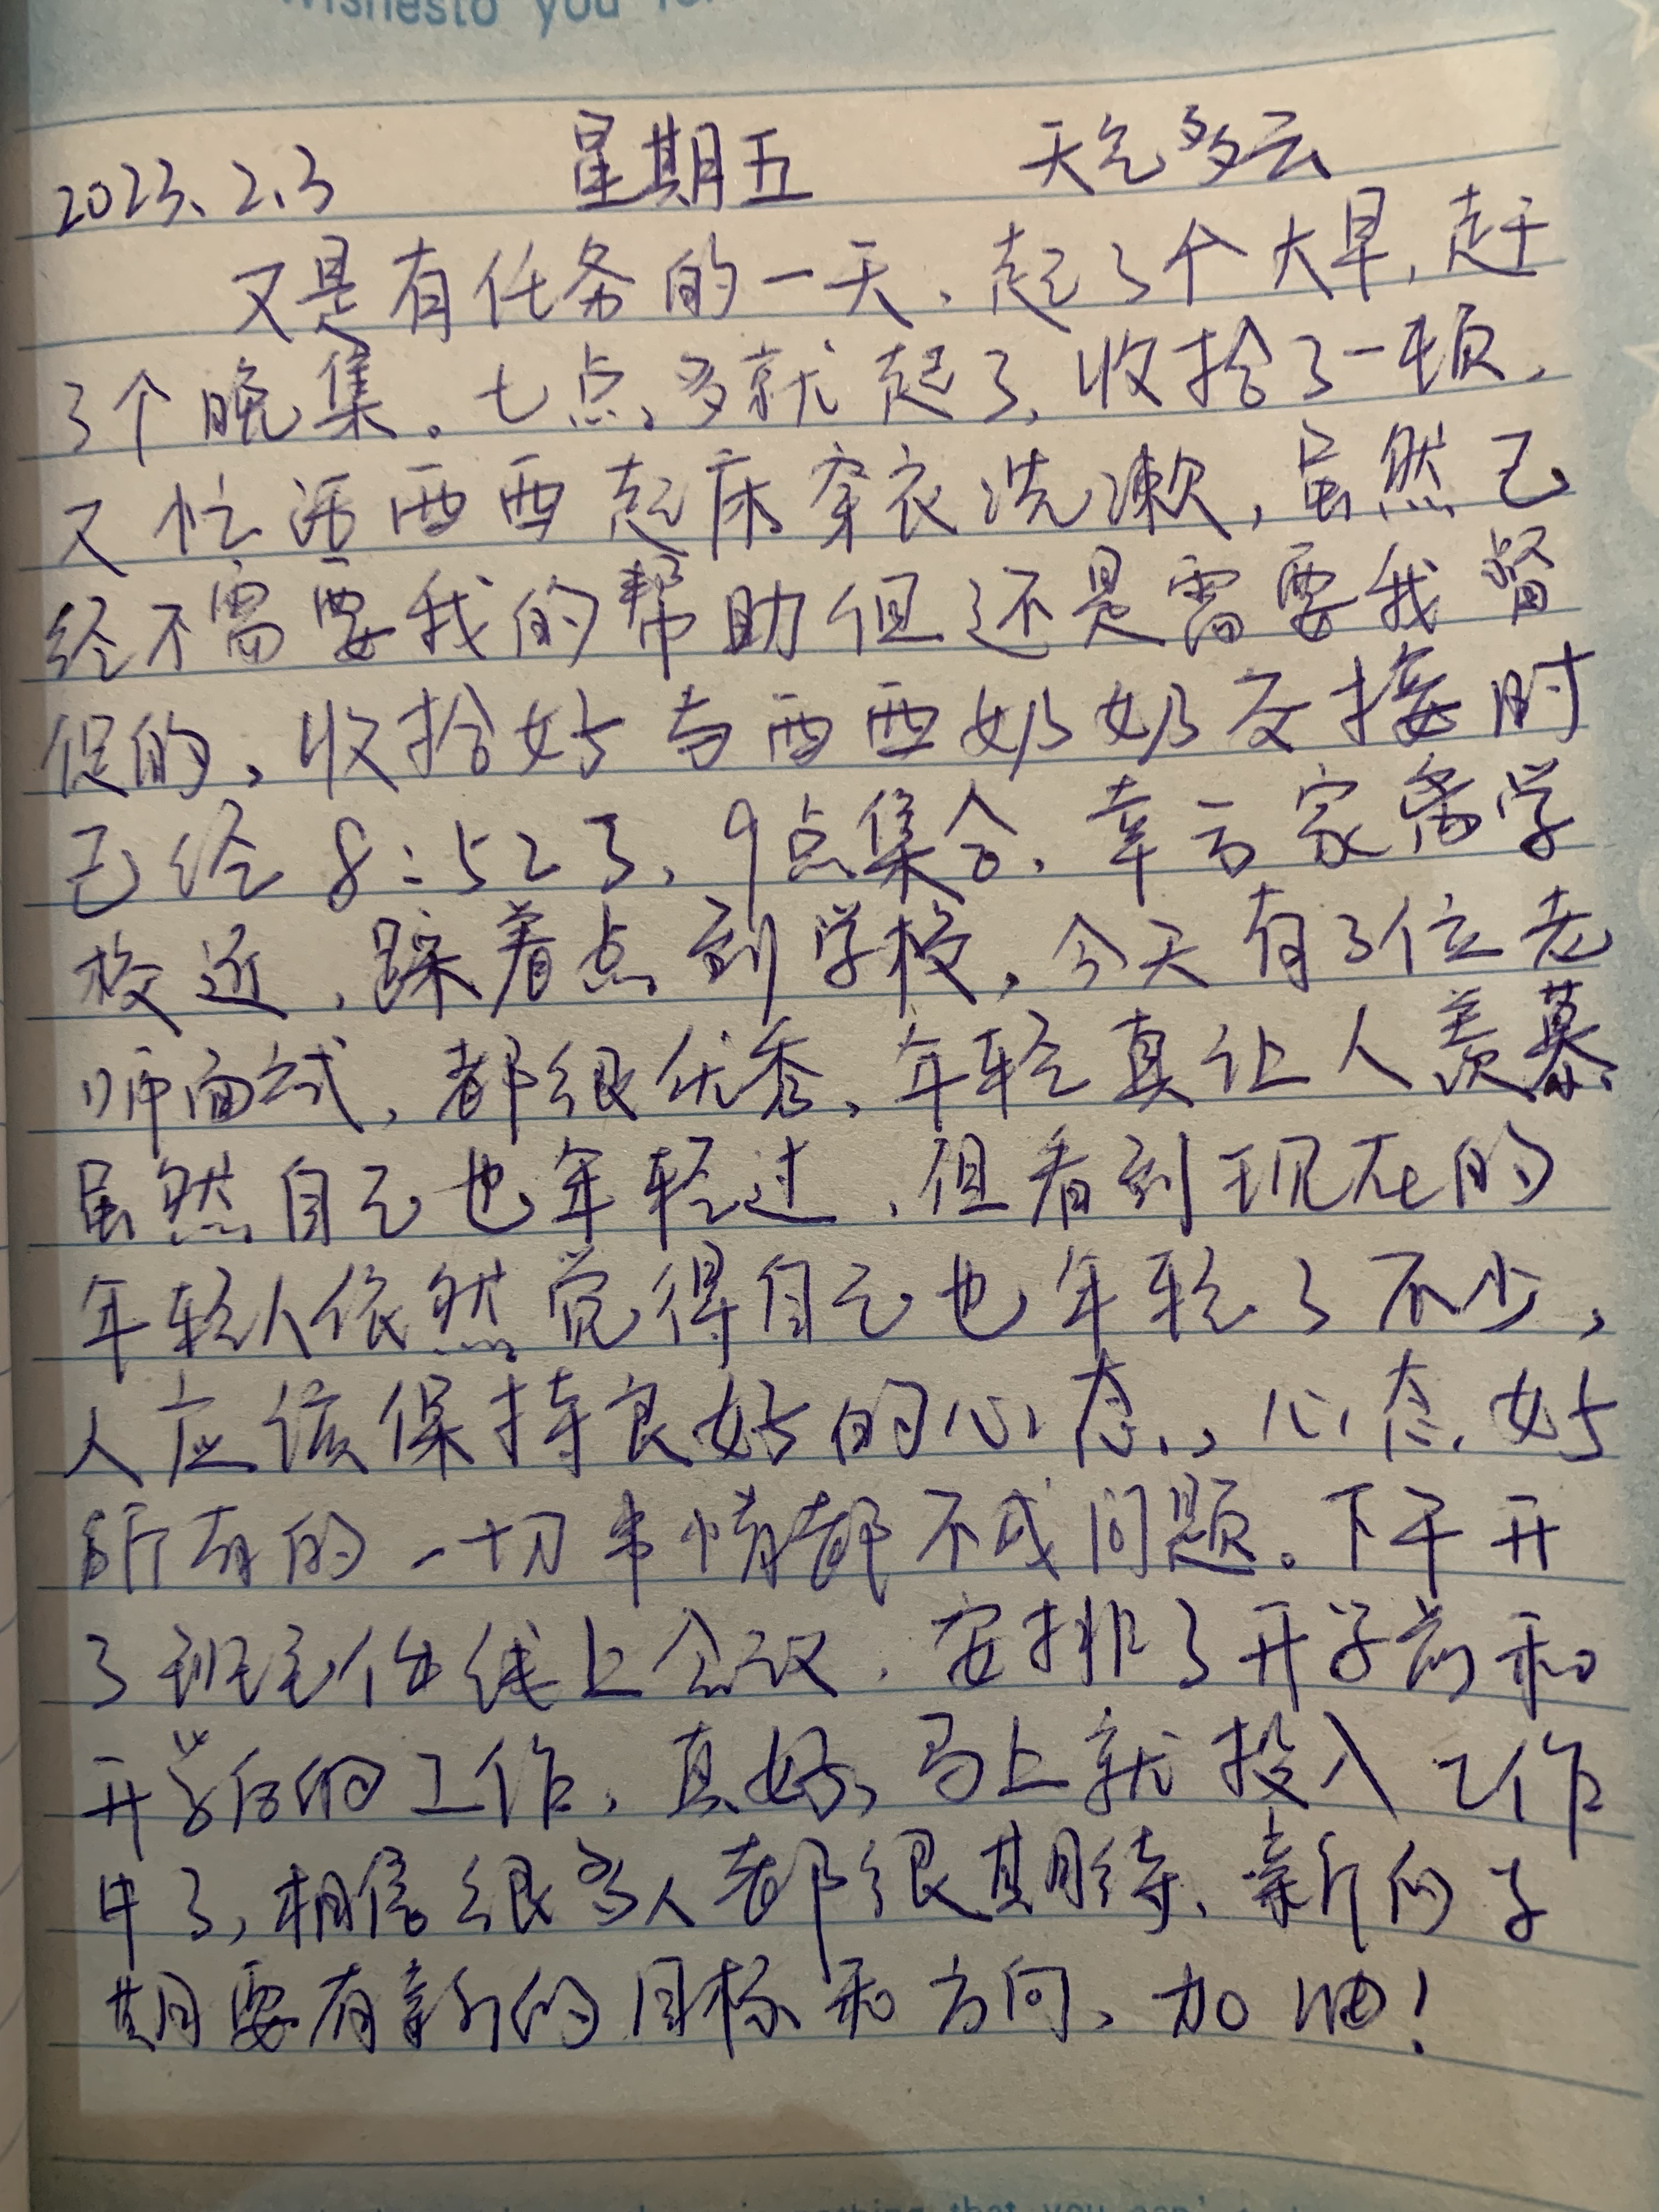 you
2023.2.3 星期五 天气多云
又是有任务的一天，起了个大早，赶
了个晚集。七点多就起了，收拾了一顿，
又忙活西西起床穿衣洗漱，虽然已
经不需要我的帮助但还是需要我督
促的，收拾好与西西奶奶交接时
已经8:52了，9点集合，幸亏家离学
校近，踩着点到学校，今天有3位老
师面试，都很优秀，年轻真让人羡慕，
虽然自己也年轻过，但看到现在的
年轻人依然觉得自己也年轻了不少，
人应该保持良好的心态，心态好
所有的一切事情都不成问题。下午开
了班主任线上会议，安排了开学前和
开学后的工作，真好，马上就投入工作
中了，相信很多人都很期待，新的学
期要有新的目标和方向，加油！
that you can't